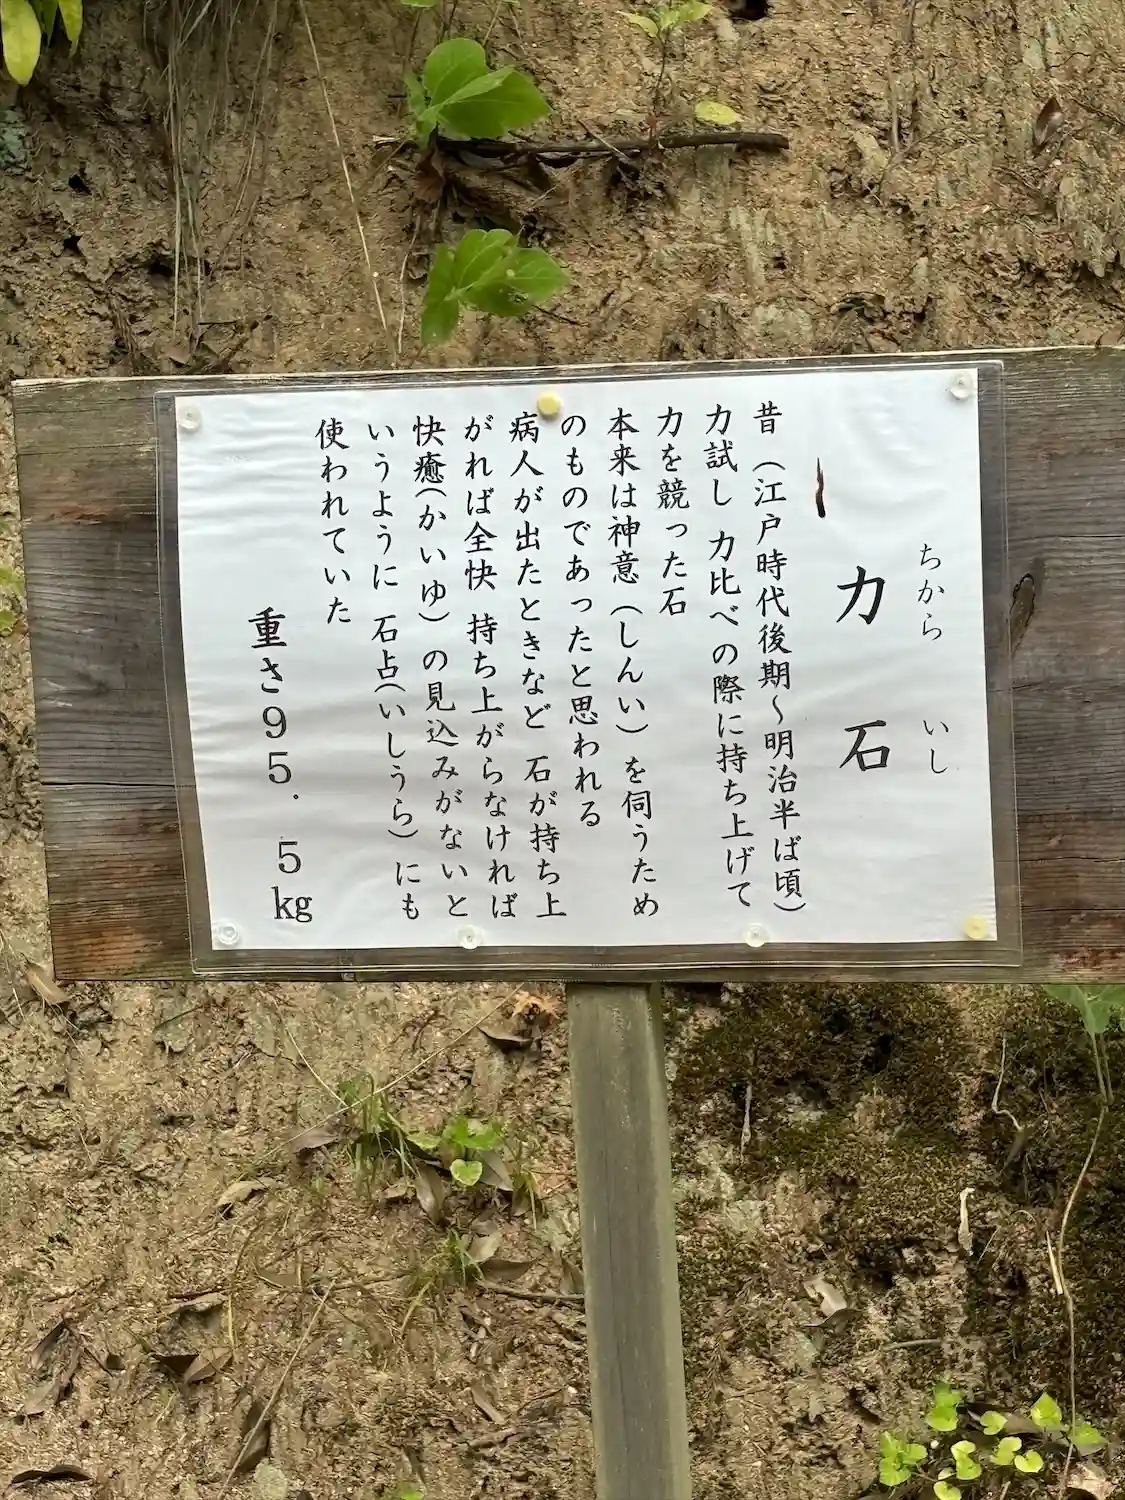 ちから いし
力石
昔（江戸時代後期～明治半ば頃）
力試し 力比べの際に持ち上げて
力を競った石
本来は神意（しんい）を伺うため
のものであったと思われる
病人が出たときなど 石が持ち上
がれば全快 持ち上がらなければ
快癒（かいゆ）の見込みがないと
いうように 石占（いしうら）にも
使われていた
重さ95.5kg